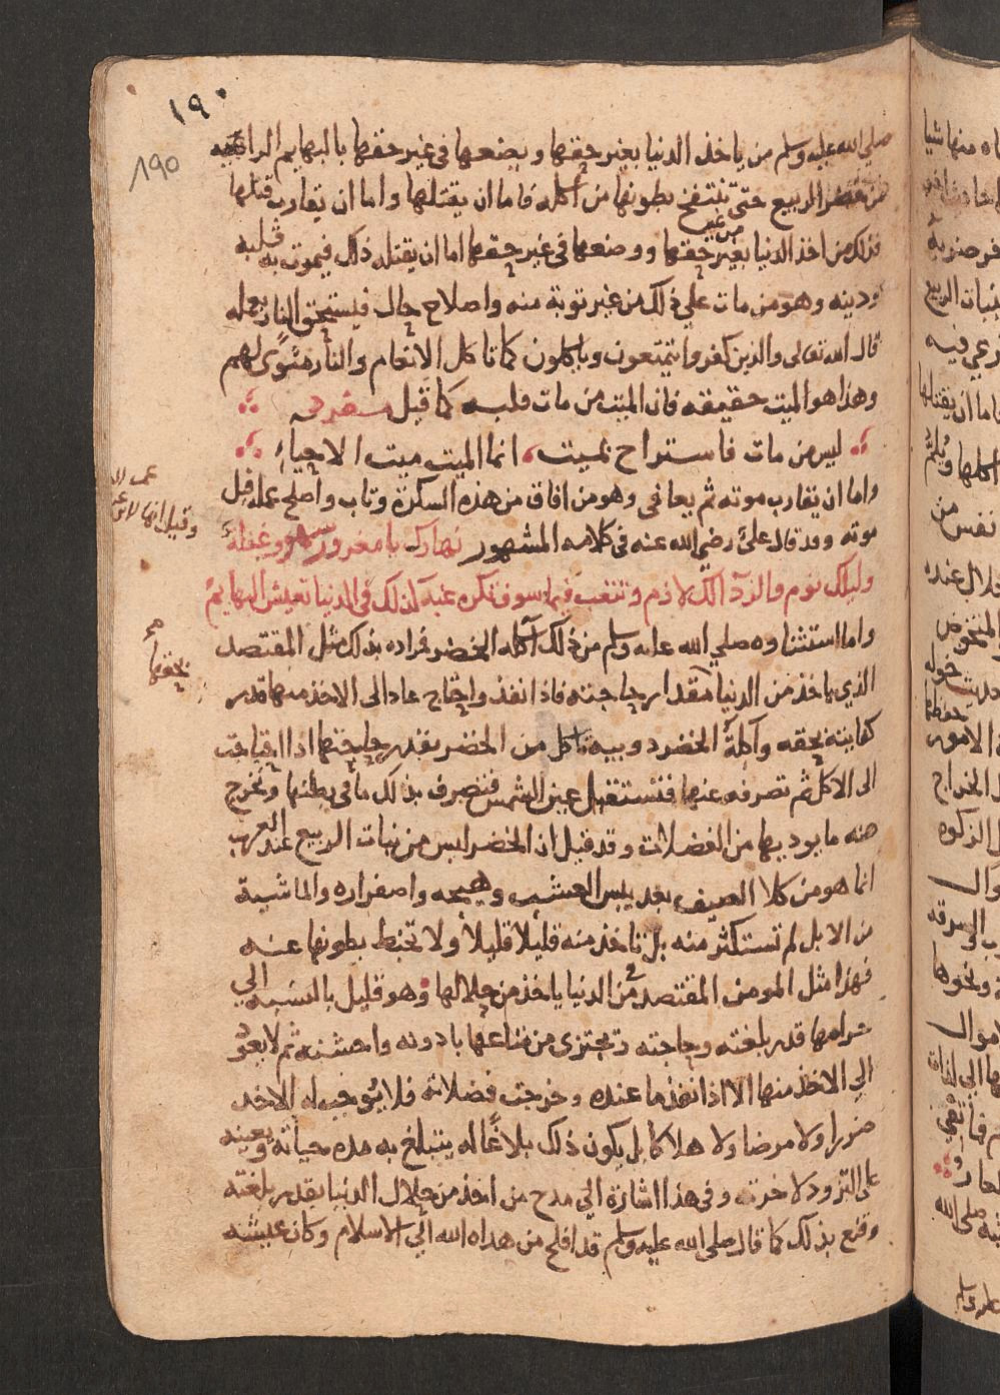 ١٩٠
190
صلي الله عليه وسلم من ياخذ الدنيا بغير حقها ويضعها في غير حقها بالبهايم الراعيه
من خضر الربيع حتى تنتفخ بطونها من اكله فاما ان يقتلها واما ان يقارب قتلها
فكذلك من اخذ الدنيا بغير حقها ووضعها في غير حقها اما ان يقتله ذلك فيموت به قلبه
ودينه وهو من مات علي ذلك من غير توبة منه واصلاح حال فيستحق النار بعمله
قال الله تعالى والذين كفروا يتمتعون وياكلون كما تاكل الانعام والنار مثوى لهم
وهذا هو الميت حقيقه فان الميت من مات قلبه كما قيل شعر
ليس من مات فاستراح بميت انما الميت ميت الاحياء
واما ان يقارب موته ثم يعافى وهو من افاق من هذه السكرة وتاب واصلح عمله قبل
موته وقد قال علي رضي الله عنه في كلامه المشهور نهارك يا مغرور سهو وغفلة
وليلك نوم والردا لك لازم وتتعب فيما سوف تكره غبه كذلك في الدنيا تعيش البهايم
واما استثناوه صلي الله عليه وسلم من ذلك آكله الخضر فمراده بذلك مثل المقتصد
الذي ياخذ من الدنيا مقدار حاجته فاذا نفذ واحتاج عاد الى الاخذ منها قدر
كفايته بحقه وآكلة الخضر دويبه تاكل من الخضر بقدر حاجتها اذا احتاجت
الى الاكل ثم تصرفه عنها فتستقبل عين الشمس فتصرف بذلك ما في بطنها وتخرج
منه ما يوذيها من الفضلات وقد قيل ان الخضر ليس من نبات الربيع عند العرب
انما هو من كلا الصيف بعد يبس العشب وهيجه واصفراره والماشية
من الابل لم تستكثر منه بل تاخذ منه قليلا قليلا ولا تحبط بطونها عنه
فهذا مثل المومن المقتصد من الدنيا ياخذ من حلالها وهو قليل بالنسبه الي
حرامها قدر بلغته وحاجته ويجتزى من متاعها بادونه واخشنه ثم لا يعود
الي الاخذ منها الا اذا نفذ ما عنده وخرجت فضلاته فلا يوجب له الاخذ
ضررا ولا مرضا ولا هلاكا بل يكون ذلك بلاغا له يتبلغ به مده حياته ويعينه
على التزود لاخرته وفي هذا اشارة الي مدح من اخذ من حلال الدنيا بقدر بلغته
وقنع بذلك كما قال صلى الله عليه وسلم قد افلح من هداه الله الي الاسلام وكان عيشه
وقيل انها
بحقها